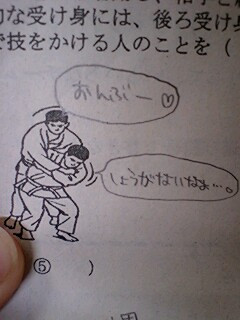 的な受け身には、後ろ受け身
で技をかける人のことを（
おんぶー♡
しょうがないなぁ…。
⑤　　）